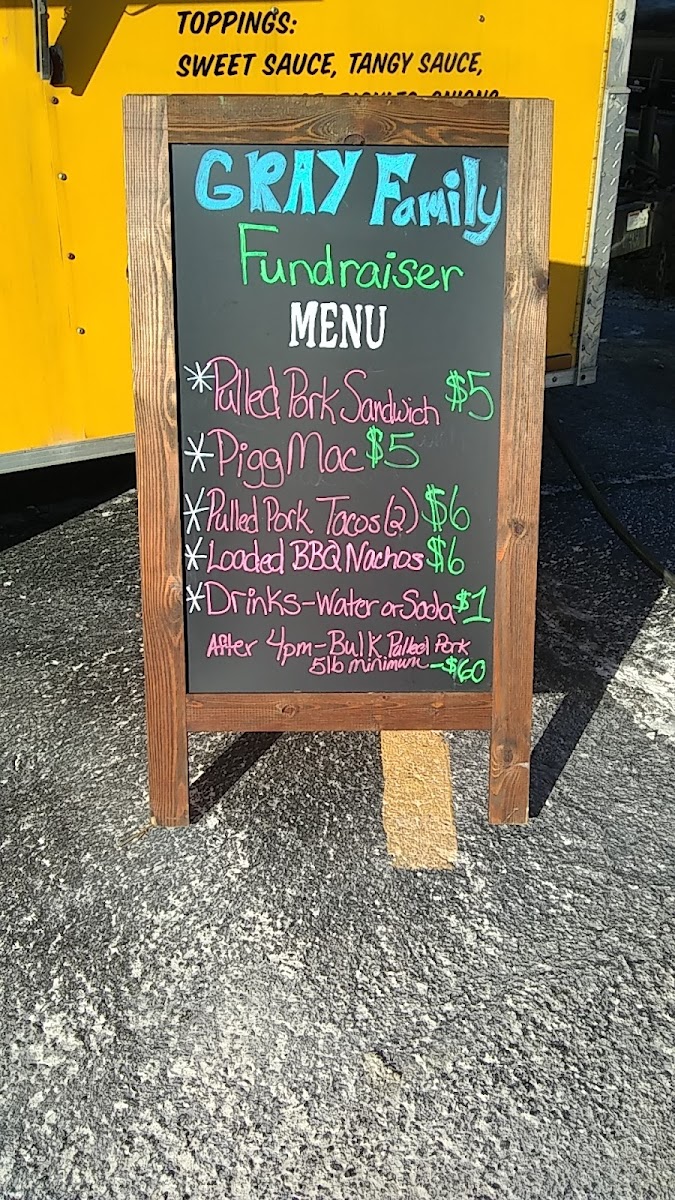 TOPPINGS:
SWEET SAUCE, TANGY SAUCE,
PICKLES, ONIONS
GRAY Family
Fundraiser
MENU
*Pulled Pork Sandwich $5
*Pigg Mac $5
*Pulled Pork Tacos (2) $6
*Loaded BBQ Nachos $6
*Drinks-Water or Soda $1
After 4pm-Bulk Pulled Pork
5lb minimum -$60